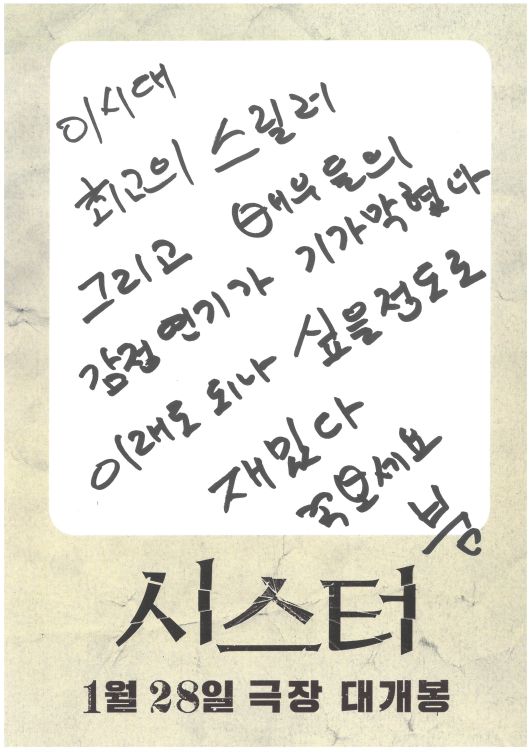 이시대
최고의 스릴러
그리고 배우들의
감정연기가 기가막혔다
이래도 되나 싶을정도로
재밌다
꼭보세요
시스터
1월 28일 극장 대개봉